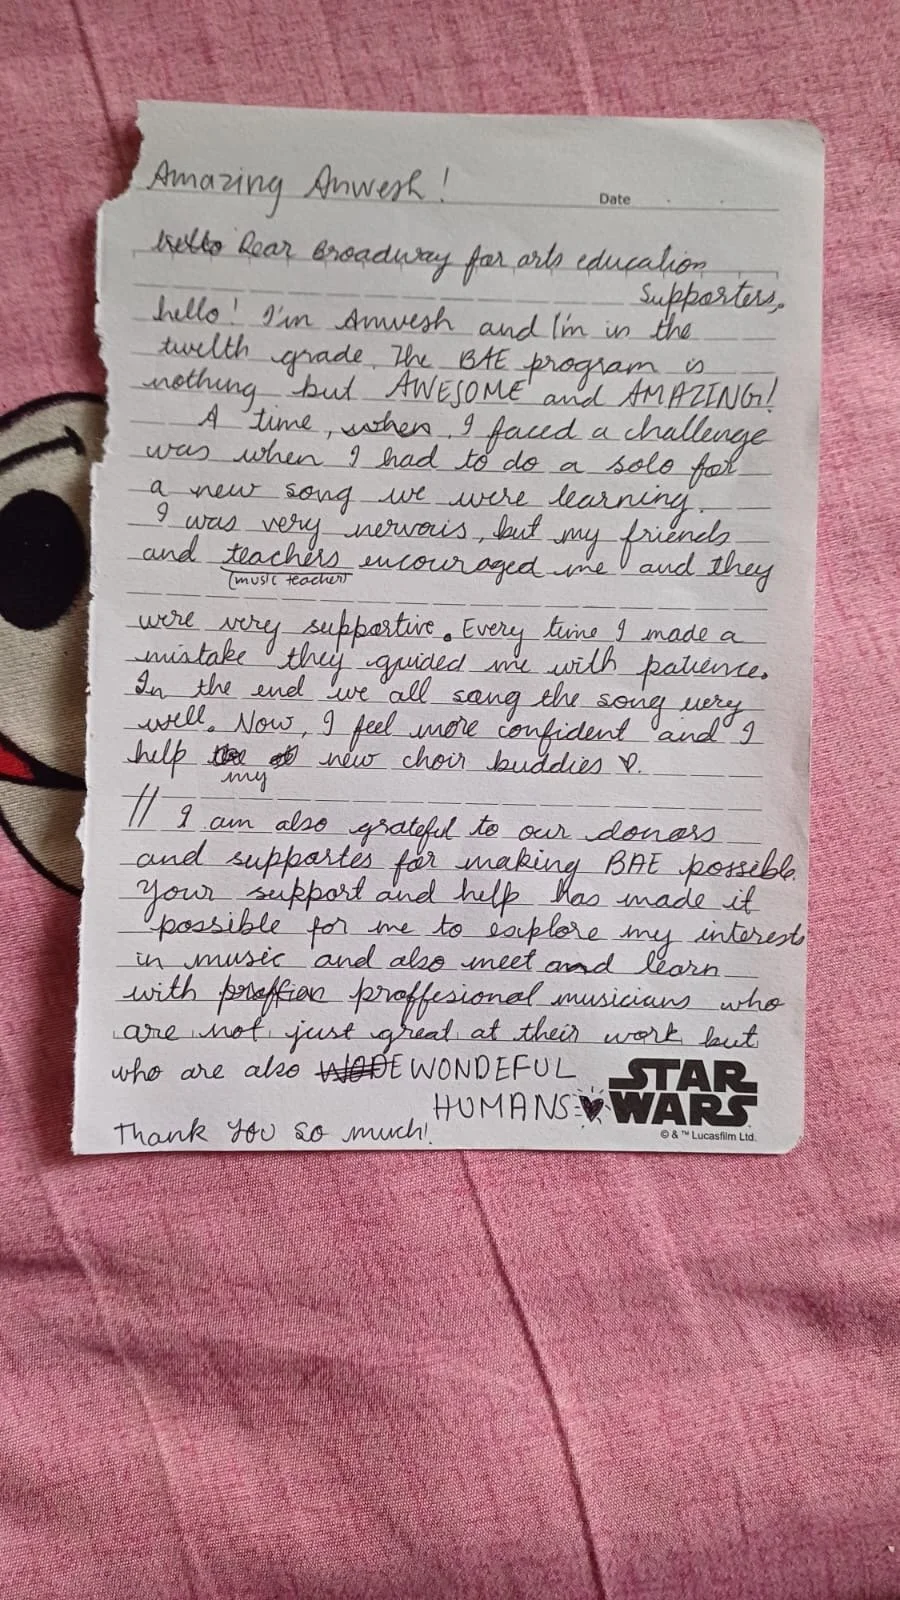 Amazing Anwesh!
Date
hello Dear Broadway for arts education
Supporters,
hello! I'm Anwesh and I'm in the
twelth grade. The BAE program is
nothing but AWESOME and AMAZING!
A time, when, I faced a challenge
was when I had to do a solo for
a new song we were learning.
I was very nervous, but my friends
and teachers encouraged me and they
(music teacher)
were very supportive. Every time I made a
mistake they guided me with patience.
In the end we all sang the song very
well. Now, I feel more confident and I
help the new choir buddies ♡.
my
// I am also grateful to our donors
and supportes for making BAE possible.
Your support and help has made it
possible for me to explore my interests
in music and also meet and learn
with proffesional musicians who
are not just great at their work but
who are also WONDEFUL
HUMANS ♥
Thank You so much!
STAR
WARS
© & ™ Lucasfilm Ltd.